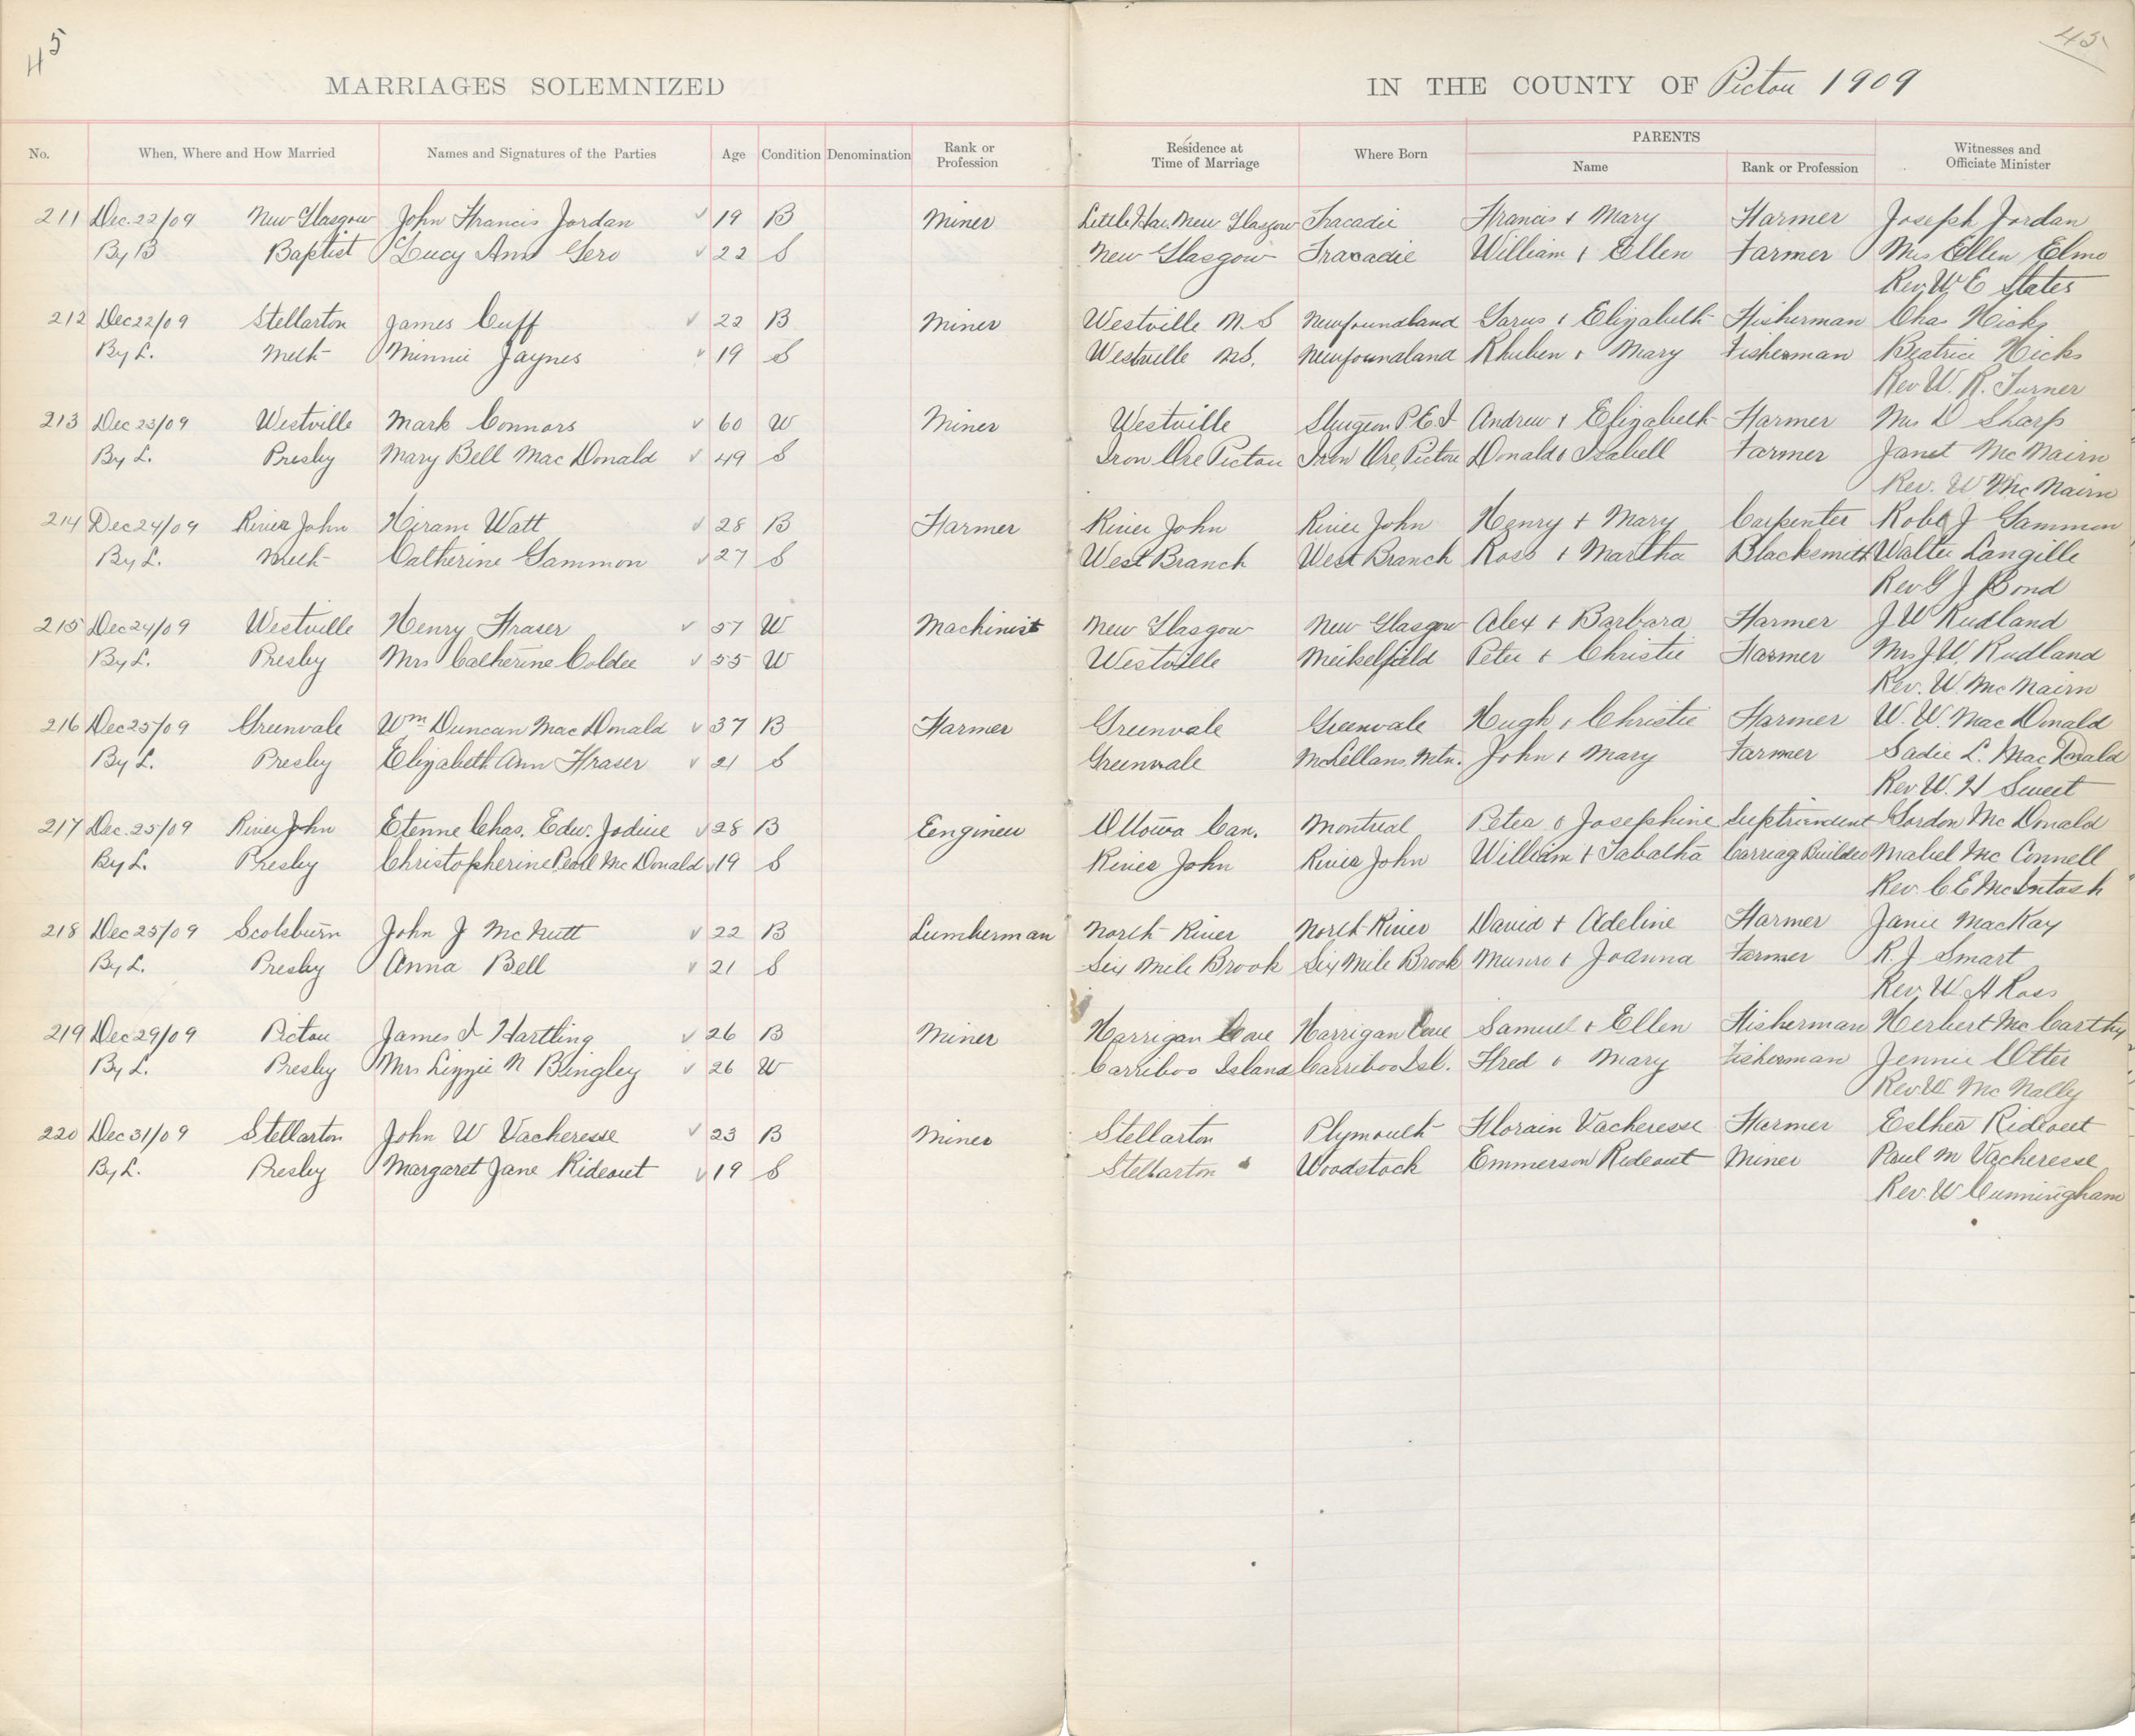 45
45
MARRIAGES SOLEMNIZED IN THE COUNTY OF Pictou 1909
No. When, Where and How Married Names and Signatures of the Parties Age Condition Denomination Rank or Profession Residence at Time of Marriage Where Born PARENTS Name Rank or Profession Witnesses and Officiate Minister
211 Dec. 22/09 New Glasgow John Francis Jordan 19 B Miner Little Har. New Glasgow Tracadie Francis + Mary Farmer Joseph Jordan
By B Baptist Lucy Ann Gero 22 S New Glasgow Tracadie William + Ellen Farmer Mrs Ellen Elmo
Rev. W E States
212 Dec 22/09 Stellarton James Cuff 22 B Miner Westville N.S Newfoundland + Elizabeth Fisherman Chas Hicks
By L. Meth Minnie Jaynes 19 S Westville N.S. Newfoundland Rhuben + Mary Fisherman Beatrice Hicks
Rev W. R. Turner
213 Dec 23/09 Westville Mark Connors 60 W Miner Westville Sturgeon P.E.I Andrew + Elizabeth Farmer Mrs D Sharp
By L. Presby Mary Bell Mac Donald 49 S Iron Ore Pictou Iron Ore, Pictou Donald + Isabell Farmer Janet McNairn
Rev. W McNairn
214 Dec 24/09 River John Hiram Watt 28 B Farmer River John River John Henry + Mary Carpenter Robt J Gammon
By L. Meth Catherine Gammon 27 S West Branch West Branch Ross + Martha Blacksmith Walter Langille
Rev G J Bond
215 Dec 24/09 Westville Henry Fraser 57 W Machinist New Glasgow New Glasgow Alex + Barbara Farmer J. W Rudland
By L. Presby Mrs Catherine Coldee 55 W Westville Meikelfield Peter + Christie Farmer Mrs J. W. Rudland
Rev. W. McNairn
216 Dec 25/09 Greenvale Wm Duncan Mac Donald 37 B Farmer Greenvale Greenvale Hugh + Christie Farmer W. W. Mac Donald
By L. Presby Elizabeth Ann Fraser 21 S Greenvale McLellans Mtn. John + Mary Farmer Sadie L. Mac Donald
Rev. W. H Sweet
217 Dec. 25/09 River John Etenne Chas. Edw. Jodine 28 B Eengineer Ottowa Can. Montreal Peter + Josephine Suptriendent Gordon Mc Donald
By L. Presby Christopherine Pearl Mc Donald 19 S River John River John William + Tabatha Carriag Builder Mabel Mc Connell
Rev. C E McIntosh
218 Dec 25/09 Scotsburn John J McNutt 22 B Lumberman North River North River David + Adeline Farmer Janie MacKay
By L. Presby Anna Bell 21 S Six Mile Brook Six Mile Brook Munro + Joanna Farmer R. J Smart
Rev. W. A Ross
219 Dec 29/09 Pictou James I Hartling 26 B Miner Harrigan Cove Harrigan Cove Samuel + Ellen Fisherman Herbert McCarthy
By L. Presby Mrs Lizzie N Bingley 26 W Carriboo Island Carriboo Isl. Fred + Mary Fisherman Jennie Otter
Rev W Mc Nally
220 Dec 31/09 Stellarton John W Vacheresse 23 B Miner Stellarton Plymouth Florain Vacheresse Farmer Esther Rideout
By L. Presby Margaret Jane Rideout 19 S Stellarton Woodstock Emmerson Rideout Miner Paul M Vacheresse
Rev. W Cunningham